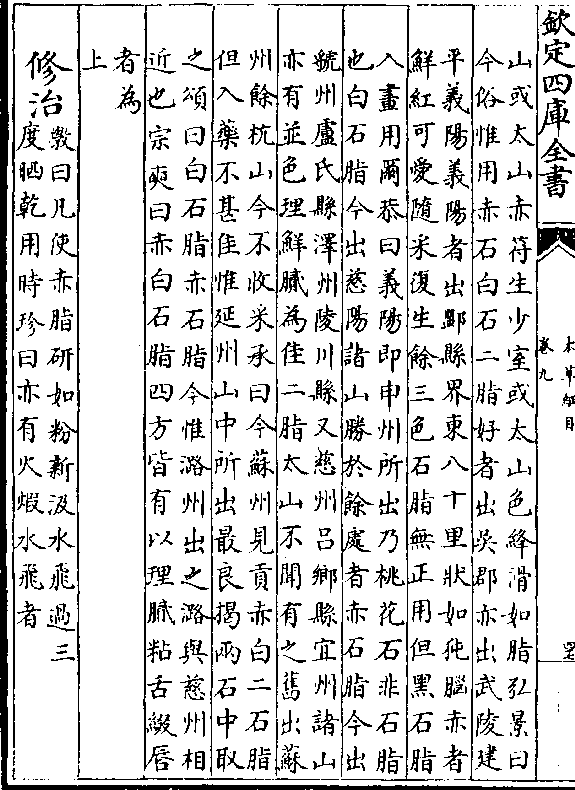 欽定四庫全書
本草綱目
卷九
山或太山亦符生少室或太山色絳滑如脂弘景曰
今俗惟用赤石白石二脂好者出吳郡亦出武陵建
平義陽義陽者出鄳縣界東八十里狀如㹠腦赤者
鮮紅可愛隨采復生餘三色石脂無正用但黑石脂
入畫用爾恭曰義陽即申州所出乃桃花石非石脂
也白石脂今出慈陽諸山勝於餘處者赤石脂今出
虢州盧氏縣澤州陵川縣又慈州呂鄉縣宜州諸山
亦有並色理鮮膩為佳二脂太山不聞有之舊出蘇
州餘杭山今不收采承曰今蘇州見貢赤白二石脂
但入藥不甚佳惟延州山中所出最良揭兩石中取
之頌曰白石脂赤石脂今惟潞州出之潞與慈州相
近也宗奭曰赤白石脂四方皆有以理膩粘舌綴唇
者為
上
修治
斆曰凡使赤脂研如粉新汲水飛過三
度晒乾用時珍曰亦有火煆水飛者